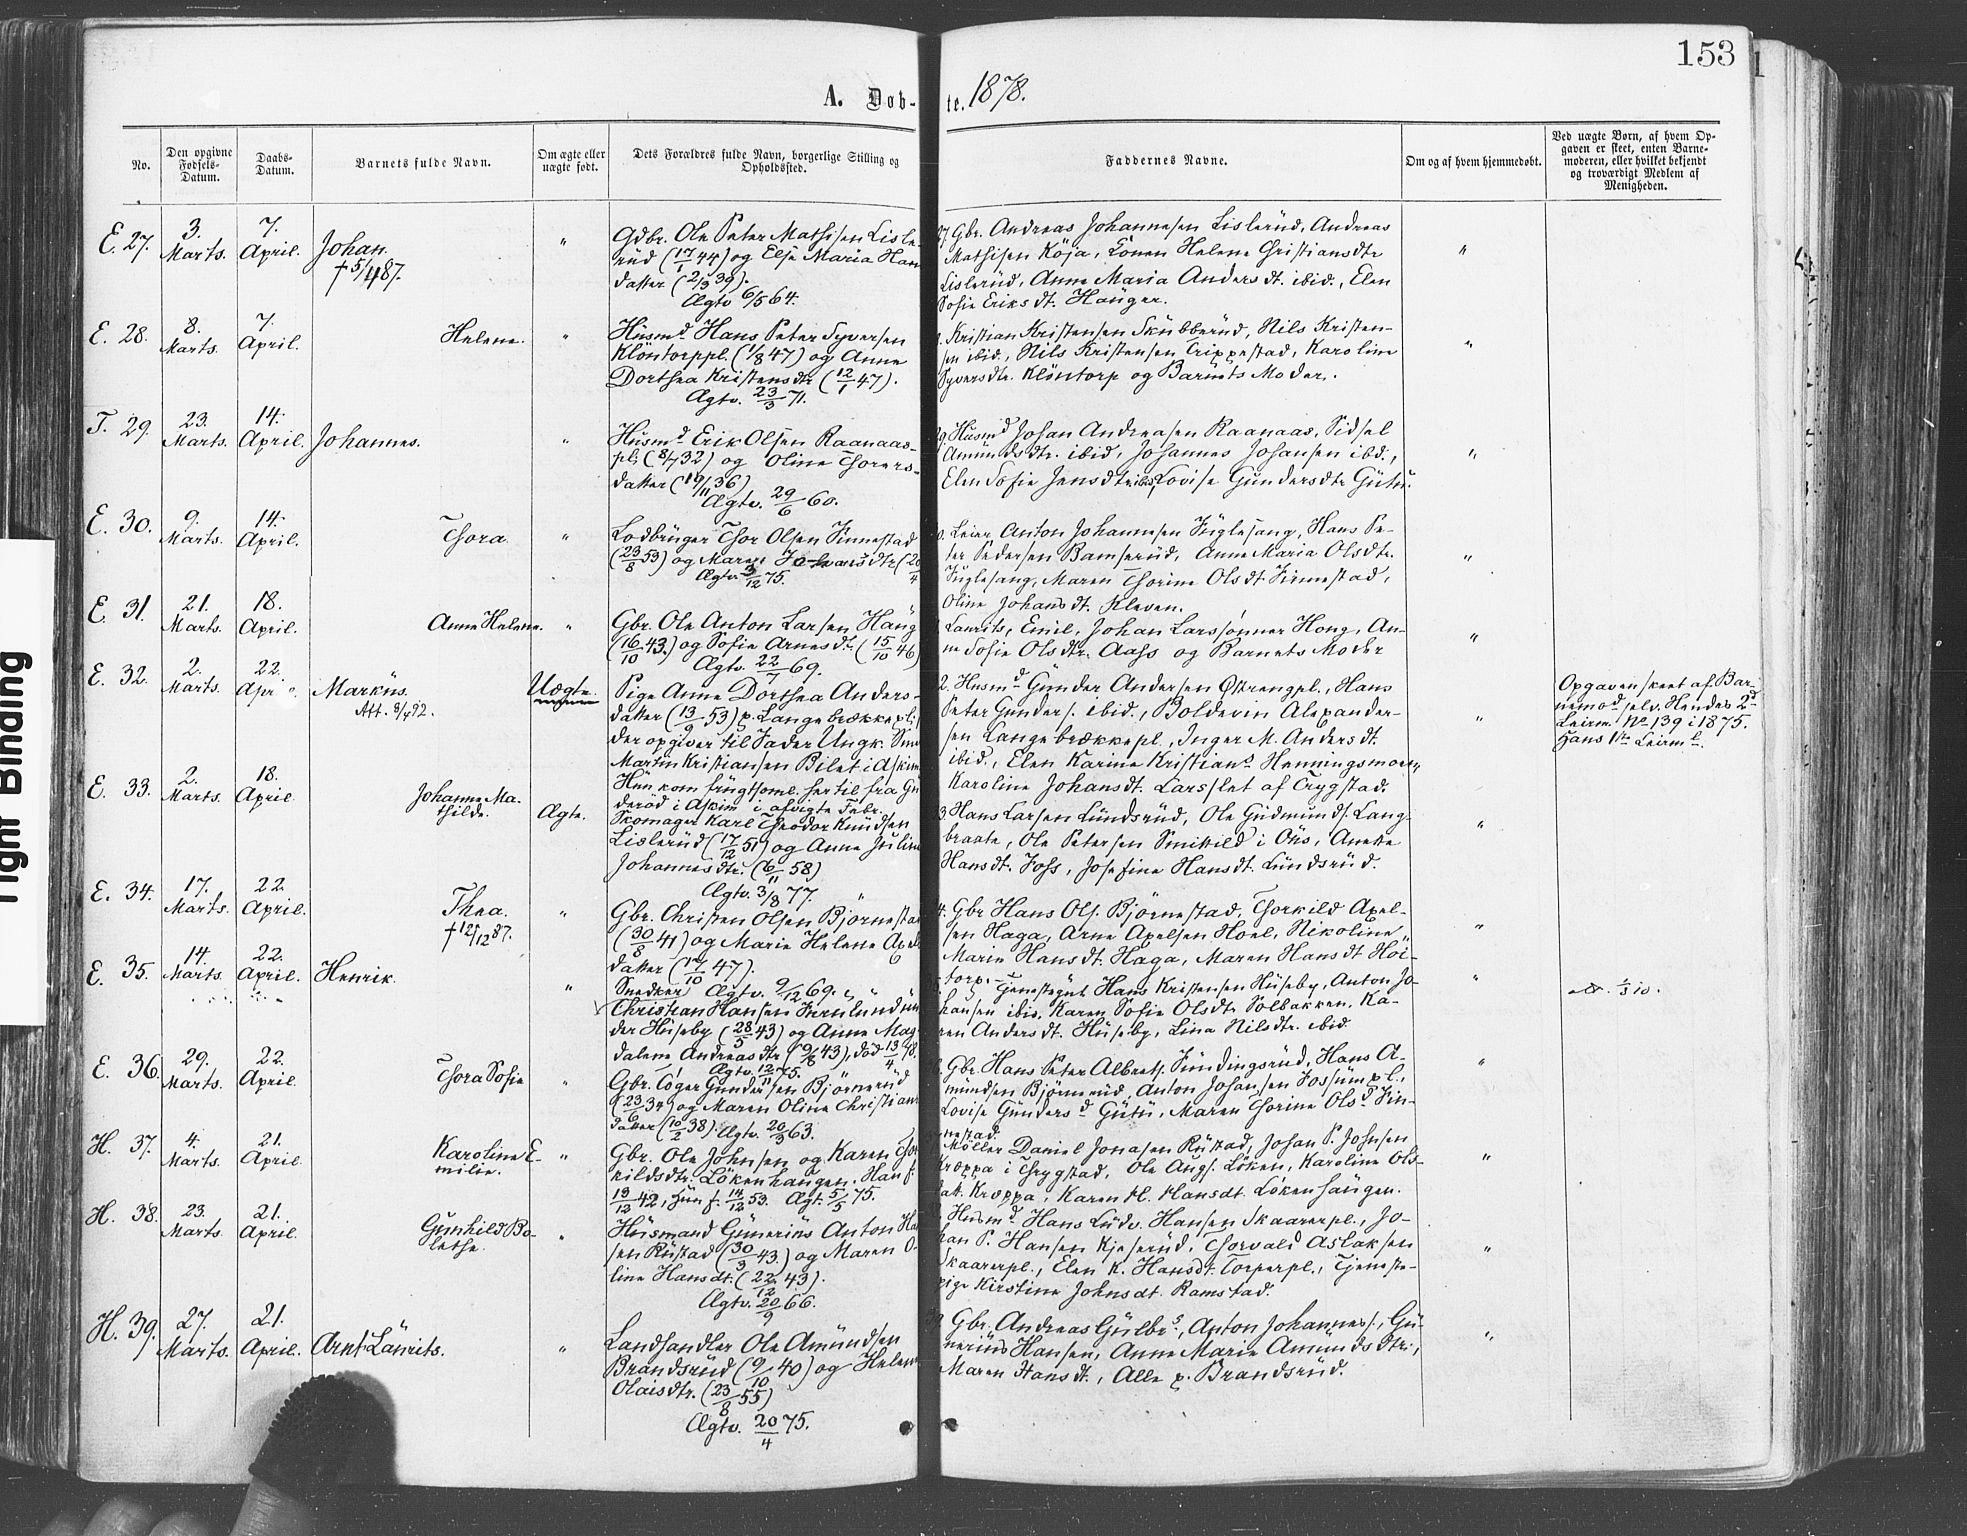 153
A. Døb-te. 1878.
No.
Den opgivne Fødsels-Datum.
Daabs-Datum.
Barnets fulde Navn.
Om ægte eller uægte født.
Dets Forældres fulde Navn, borgerlige Stilling og Opholdssted.
Faddernes Navne.
Om og af hvem hjemmedøbt.
Ved uægte Børn, af hvem Opgaven er skeet, enten Barnemoderen, eller hvilket bekjendt og troværdigt Medlem af Menigheden.
E. 27. 3. Marts. 7. April. Johan. † 5/4 87. "
Gdbr. Ole Peter Mathisen Lisle-
rud (17/1 44) og Else Maria Han
datter (2/3 39).
Ægtv. 6/5 64.
27. Gbr. Andreas Johannesen Lislerud, Andreas
Mathisen Köja, Konen Helene Cristiansdtr
Lislerud, Anne Maria Andersdt. ibid., Elen
Sofie Eriksdt. Hauger.
E. 28. 8. Marts. 7. April. Helene. "
Husmd Hans Peter Syversen
Klöntorppl. (1/8 47) og Anne
Dorthea Kristensdtr (12/1 47).
Ægtv. 23/3 71.
Kristian Kristensen Skubberud, Nils Kristen-
sen ibid., Nils Kristensen Trippestad, Karoline
Syversdtr. Klöntorp og Barnets Moder.
T. 29. 23. Marts. 14. April. Johannes. "
Husmd Erik Olsen Raanaas-
pl. (8/7 32) og Oline Thores-
datter (19/11 36)
Ægtv. 29/6 60.
29. Husmd Johan Andreasen Raanaas, Sidsel
Amundsdtr. ibid, Johannes Johansen ibd.,
Elen Sofie Jensdtr ibid, Lovise Gundersdtr Gutu.
E. 30. 9. Marts. 14. April. Thora. "
Lodbruger Thor Olsen Finnestad
(23/8 53) og Maren dtr (20/4
Ægtv. 3/12 75.
Leier Anton Johannesen Fuglesang, Hans Pe-
ter Pedersen Bamserud, Anne Maria Olsdtr.
Fuglesang, Maren Thorine Olsdt Finnestad,
Oline Johansdt. Kleven.
E. 31. 21. Marts. 18. April. Anne Helene. "
Gbr. Ole Anton Larsen Haug
(16/10 43.) og Sofie Arnesdt. (15/10 46)
Ægtv. 22/7 69.
Laurits, Emil, Johan Larssønner Hong, An-
ne Sofie Olsdtr. Aass og Barnets Moder
E. 32. 2. Marts. 22. Apr Markus. Att. 8/4 92. Uægte.
Pige Anne Dorthea Anders-
datter (13/9 53) p. Langebrækkepl.;
der opgiver til Fader Ungk.
Martin Kristiansen Bilet i Askim
Hun kom frugtsoml. hertil fra Gu
derød i Askim i afvigte Febr.
32. Husmd Gunder Andersen Østrengpl., Hans
Peter Gunders. ibid., Boldevin Alexander-
sen Langebrækkepl., Inger M. Andersdt.
ibid., Elen Karine Kristians Henningsmoen,
Karoline Johansdt. Larsslet af Trygstad.
Opgaven skeet af Bar-
nemod. selv. Hendes 2d
Leierm. No 139 i 1875.
Hans 1te Leierml.
E. 33. 2. Marts. 18. April Johanne Ma-
thilde. Ægte.
Skomager Karl Theodor Knudsen
Lislerud (17/12 51) og Anne Juline
Johannesdtr. (6/11 58)
Ægtv. 3/8 77.
33 Hans Larsen Lundsrud, Ole Gudmunds. Lang-
braate, Ole Petersen Smittild i Øks, Anette
Hansdt. Foss, Josefine Hansdt. Lundsrud.
E. 34. 17. Marts. 22 April. Thea. † 12/12 87. "
Gbr. Christen Olsen Bjørnestad
(30/8 41) og Marie Helene Axels
datter (17/10 47).
Ægtv. 9/12 69.
34. Gbr Hans Ols. Bjørnestad, Thorkild Axel-
sen Haga, Arne Axelsen Hoel, Nikoline
Marie Hansdt. Haga, Maren Hansdt Høi-
torp.
E. 35. 14. Marts. 22. April. Henrik. "
Snedker
Christian Hansen
der Huseby (28/5 43) og Anne Mag-
dalene Andreasdtr (9/8 43), död 13/4 78.
Ægtv. 12/11 75.
Tjenestegut Hans Kristensen Huseby, Anton Jo-
hansen ibid. Karen Sofie Olsdtr Solbakken, Ka-
ren Andersdt. Huseby, Lina Nilsdtr. ibid.
E. 36. 29. Marts. 22. April. Thora Sofie "
Gbr. Toger Gundersen Bjørnerud
(23/6 34) og Maren Oline Christians
datter (10/2 38). Ægtv. 20/3 63.
Gbr. Hans Peter Alberts. Fundingsrud, Hans A-
mundsen Bjørnerud, Anton Johansen Fossumpl.,
Lovise Gundersd Gutu, Maren Thorine Olsd Fin-
nestad.
H. 37. 4. Marts. 21. April. Karoline E-
milie. "
Gbr. Ole Johnsen og Karen Thor
kildsdtr. Løkenhaugen. Han f.
19/12 42, hun f. 14/12 53. Ægt. 5/5 75.
Møller Daniel Jonasen Rustad, Johan P. Johnsen
Kroppa i Thrygstad, Ole Augs. Løken, Karoline Ols-
dat. Kroppa, Karen M. Hansdt. Løkenhaugen.
H. 38. 23. Marts. 21. April. Gunhild Bo-
lethe. "
Husmand Gunerius Anton Han
sen Rustad (30/3 43) og Maren O-
line Hansdt. (22/12 43).
Ægtv. 20/9 66.
Husmd Hans Ludv. Hansen Skaarerpl., Jo-
han P. Hansen Kjeserud, Thorvald Aslaksen
Skaarerpl., Elen K. Hansdt. Torperpl., Tjeneste-
pige Kirstine Johnsdt Ramstad.
H. 39. 27. Marts. 21. April. Arnt Laurits. "
Landhandler Ole Amundsen
Brandsrud (9/10 40) og Helene
Olaisdtr. (23/8 55)
Ægtv. 20/4 75.
39 Gbr. Andreas Gulbs., Anton Johannes., Gu-
nerius Hansen, Anne Marie Amundsdtr.,
Maren Hansdt., Alle p. Brandsrud.
Tight Binding